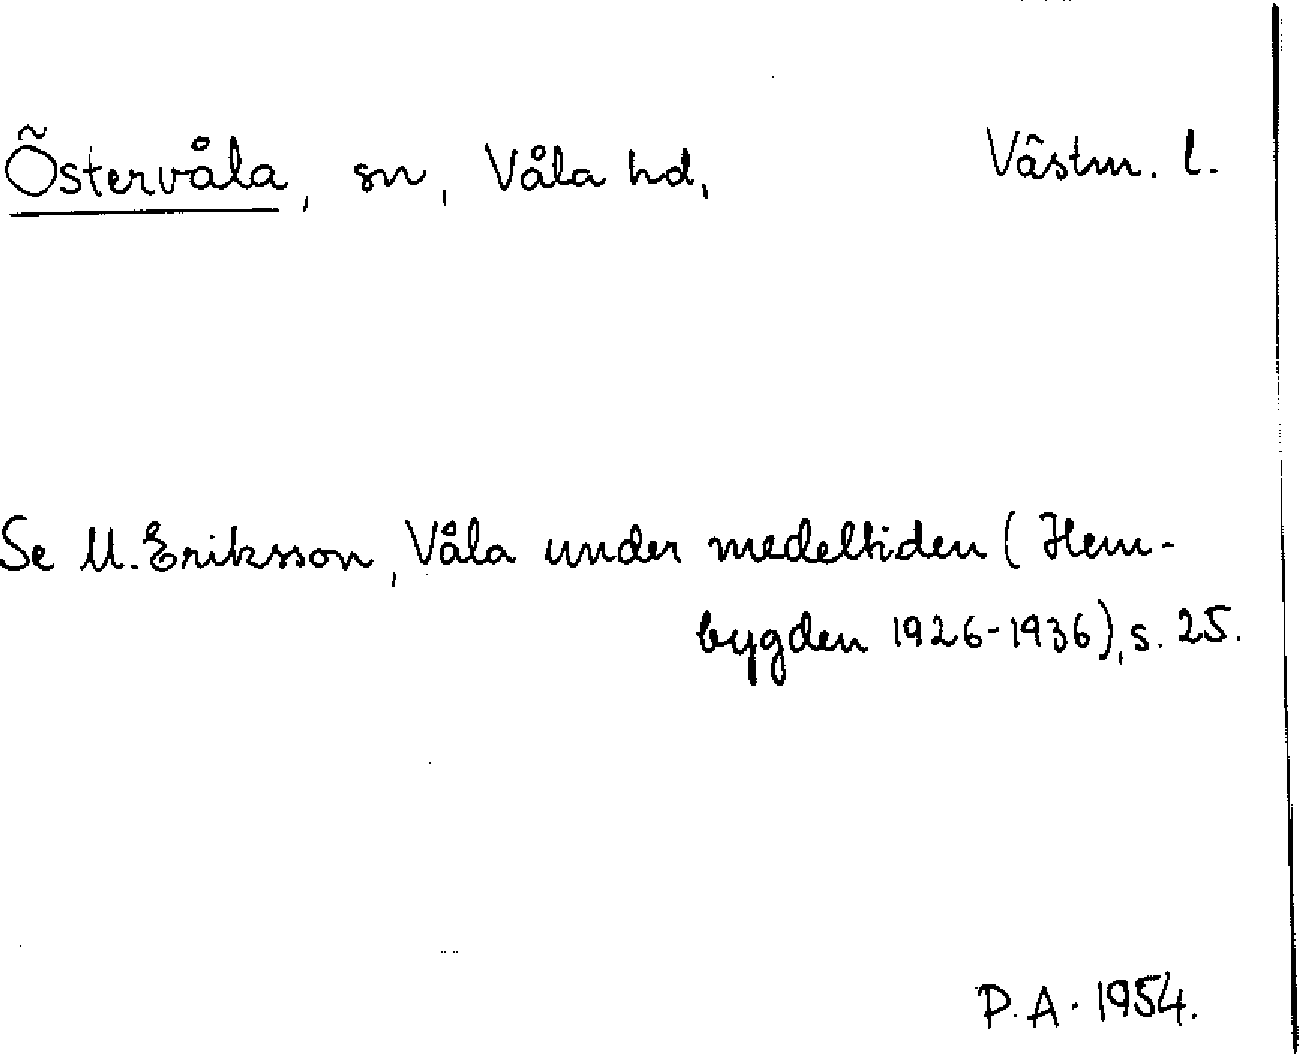 Östervåla, sn, Våla hd, Västm. l.
Se M. Eriksson, Våla under medeltiden (Hem-
bygden 1926-1936), s. 25.
P. A. 1954.